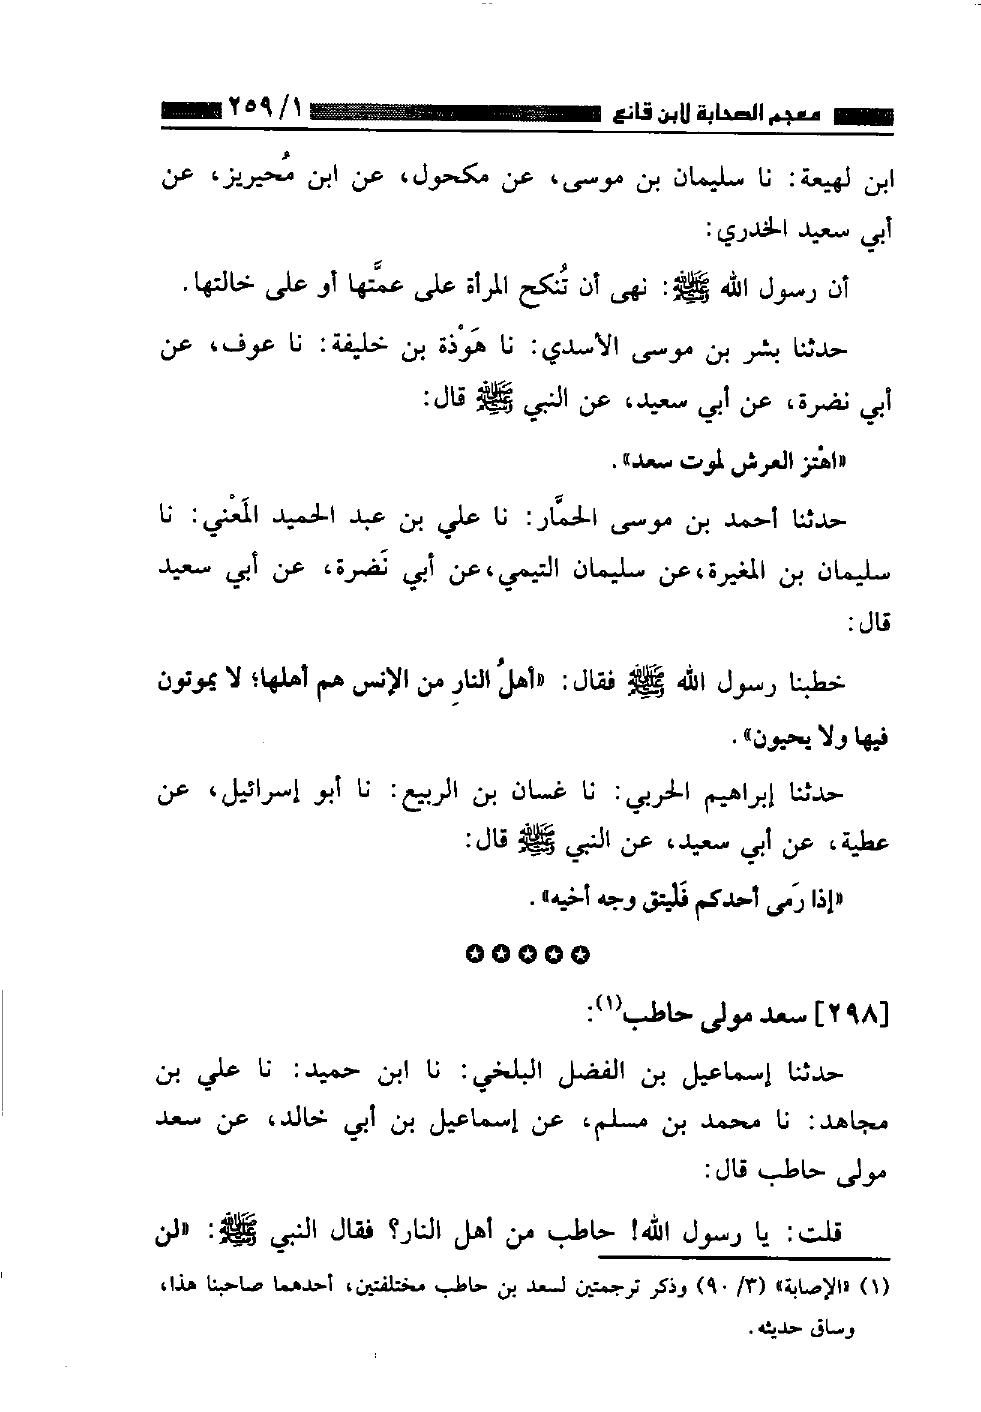 معجم الصحابة لابن قانع ١/ ٢٥٩
ابن لهيعة: نا سليمان بن موسى، عن مكحول، عن ابن مُحيريز، عن
أبي سعيد الخدري:
أن رسول الله ﷺ: نهى أن تُنكح المرأة على عمَّتها أو على خالتها.
حدثنا بشر بن موسى الأسدي: نا هَوْذة بن خليفة: نا عوف، عن
أبي نضرة، عن أبي سعيد، عن النبي ﷺ قال:
«اهْتز العرش لموت سعد».
حدثنا أحمد بن موسى الحمَّار: نا علي بن عبد الحميد المَعْني: نا
سليمان بن المغيرة، عن سليمان التيمي، عن أبي نَضرة، عن أبي سعيد
قال:
خطبنا رسول الله ﷺ فقال: «أهلُ النارِ من الإنس هم أهلها؛ لا يموتون
فيها ولا يحيون».
حدثنا إبراهيم الحربي: نا غسان بن الربيع: نا أبو إسرائيل، عن
عطية، عن أبي سعيد، عن النبي ﷺ قال:
«إذا رَمى أحدكم فَلْيتق وجه أخيه».
[٢٩٨] سعد مولى حاطب(١):
حدثنا إسماعيل بن الفضل البلخي: نا ابن حميد: نا علي بن
مجاهد: نا محمد بن مسلم، عن إسماعيل بن أبي خالد، عن سعد
مولى حاطب قال:
قلت: يا رسول الله! حاطب من أهل النار؟ فقال النبي ﷺ: «لن
(١) «الإصابة» (٣/ ٩٠) وذكر ترجمتين لسعد بن حاطب مختلفتين، أحدهما صاحبنا هذا،
وساق حديثه.